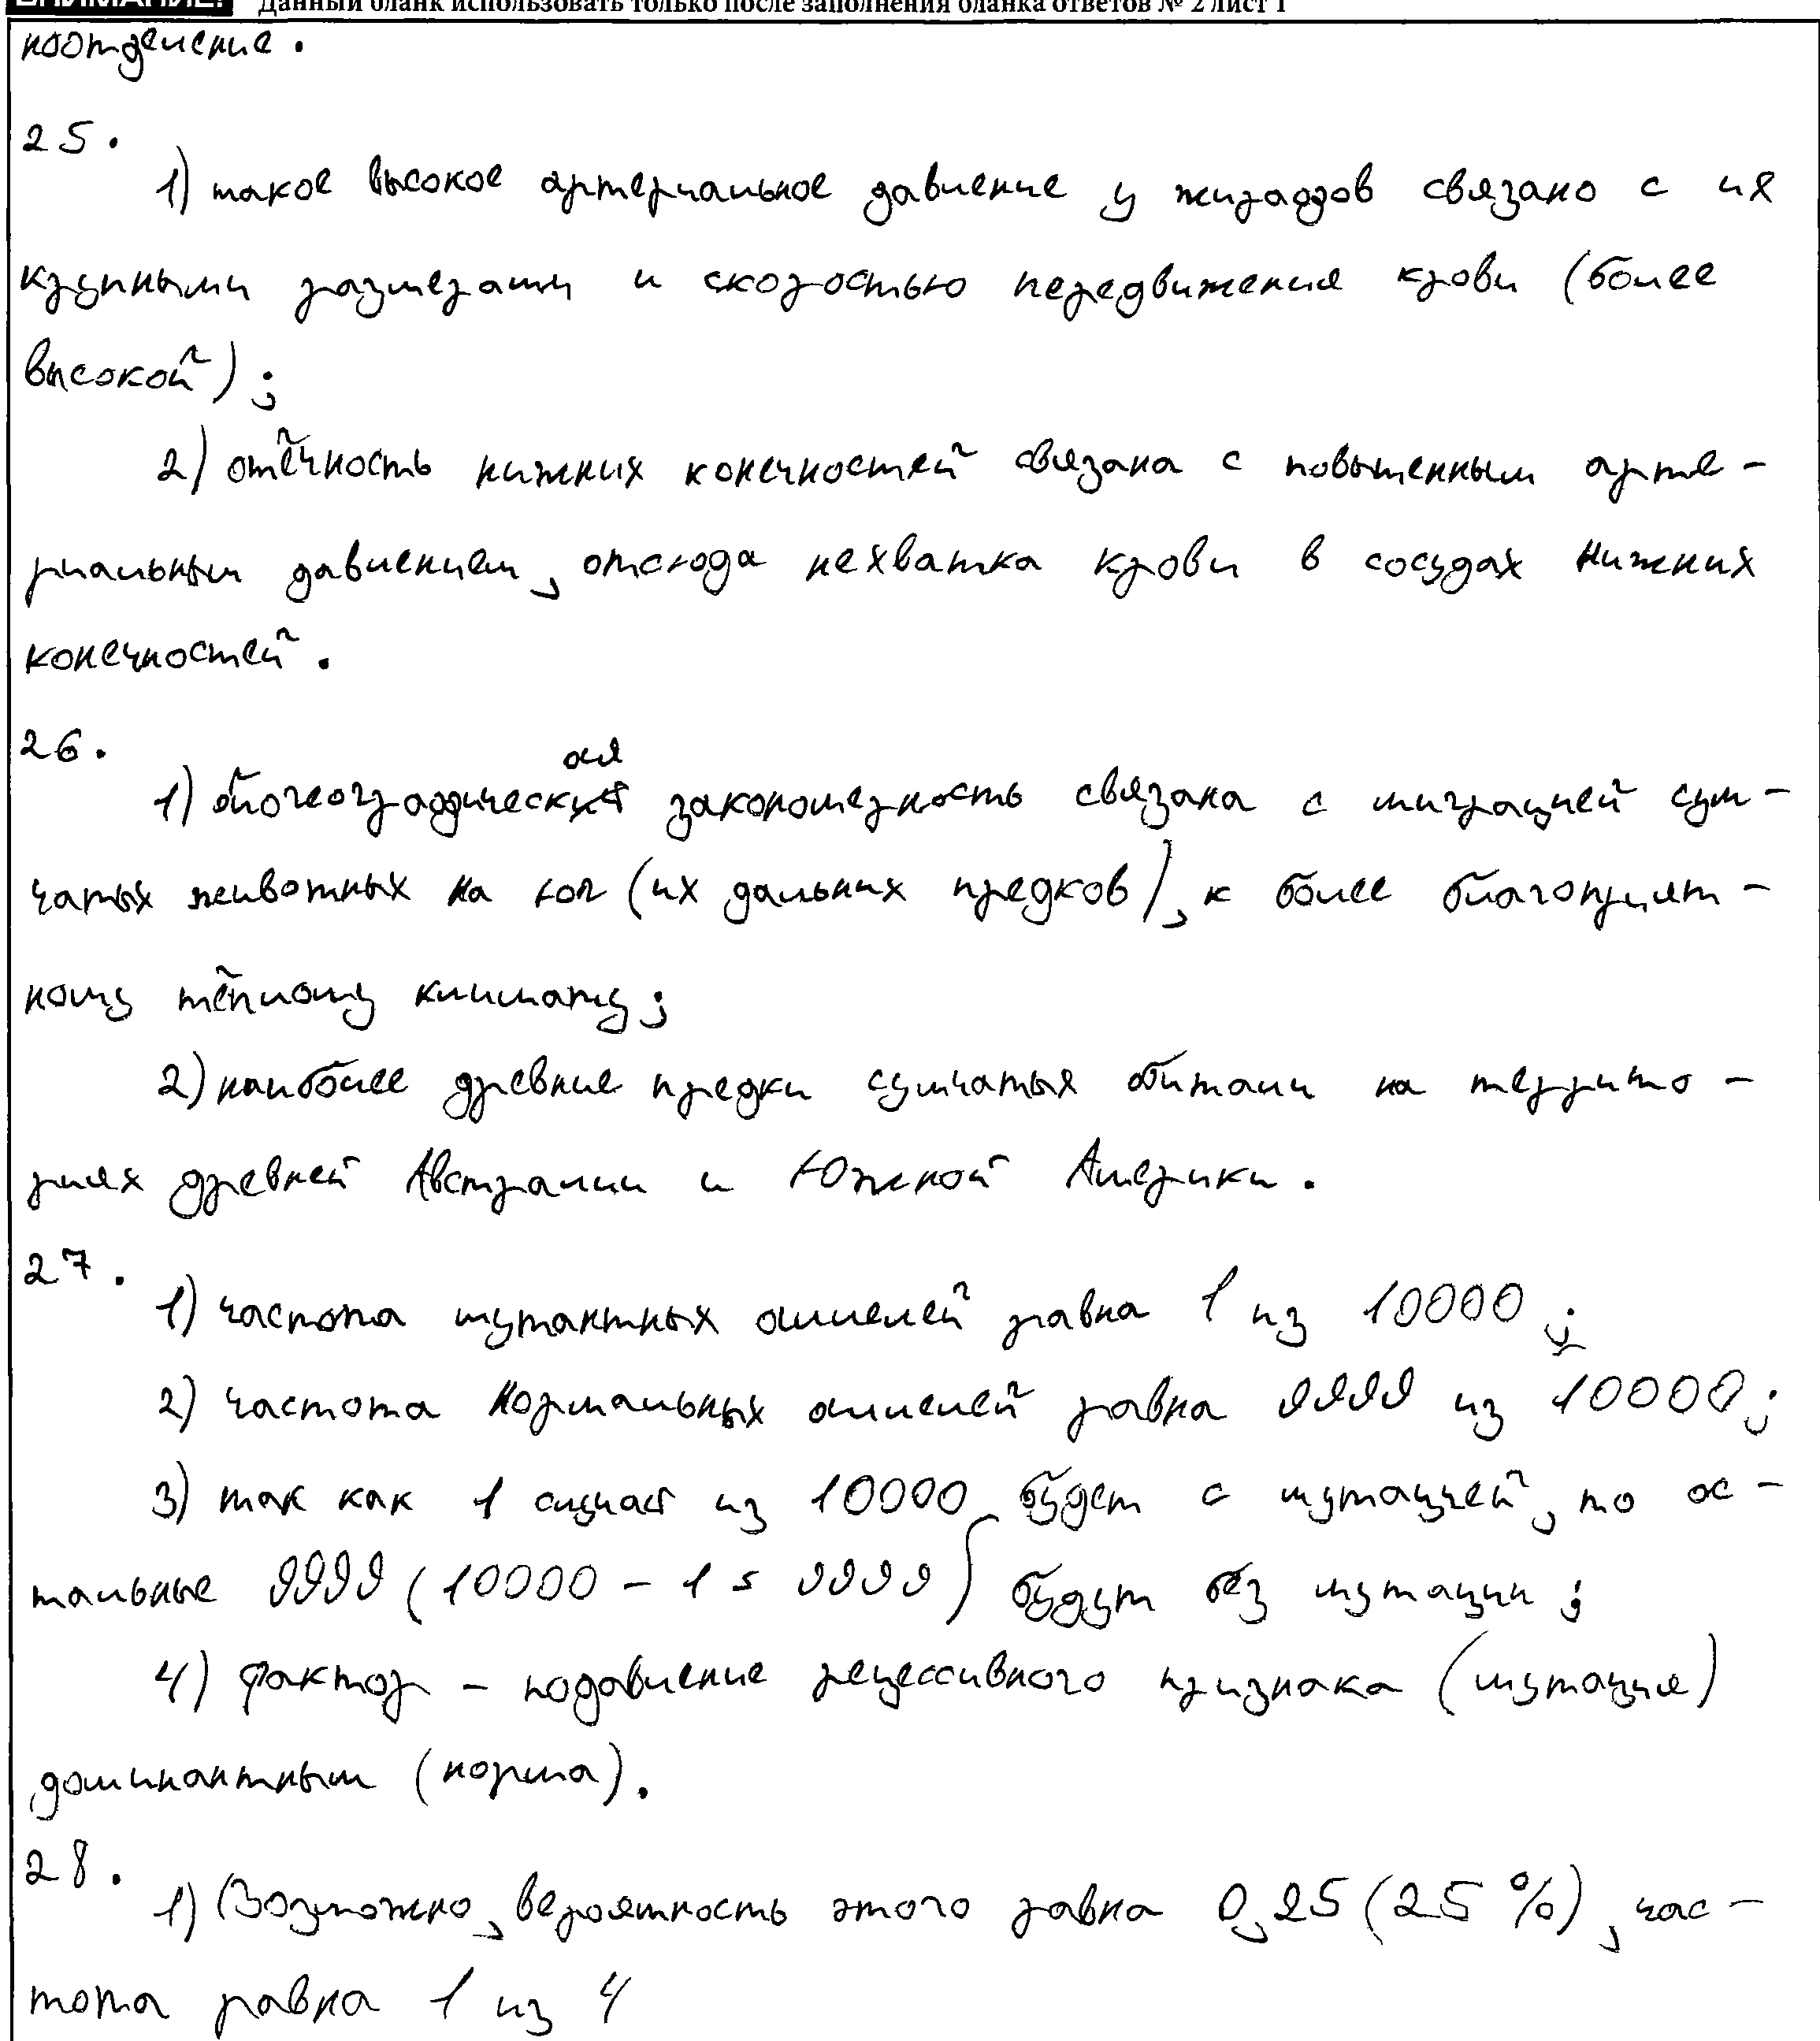 ВНИМАНИЕ! Данный бланк использовать только после заполнения бланка ответов № 2 лист 1
ноотделение.
25.
1) такое высокое артериальное давление у жирафов связано с их
крупными размерами и скоростью передвижения крови (более
высокой);
2) отёчность нижних конечностей связана с повышенным арте-
риальным давлением, отсюда нехватка крови в сосудах нижних
конечностей.
26.
1) биогеографическая закономерность связана с миграцией сум-
чатых животных на юг (их дальних предков), к более благоприят-
ному тёплому климату;
2) наиболее древние предки сумчатых обитали на террито-
риях древней Австралии и Южной Америки.
27.
1) частота мутантных аллелей равна 1 из 10000;
2) частота нормальных аллелей равна 9999 из 10000;
3) так как 1 случай из 10000 будет с мутацией, то ос-
тальные 9999 (10000 - 1 = 9999) будут без мутации;
4) фактор - подавление рецессивного признака (мутация)
доминантным (норма).
28.
1) Возможно, вероятность этого равна 0,25 (25 %), час-
тота равна 1 из 4